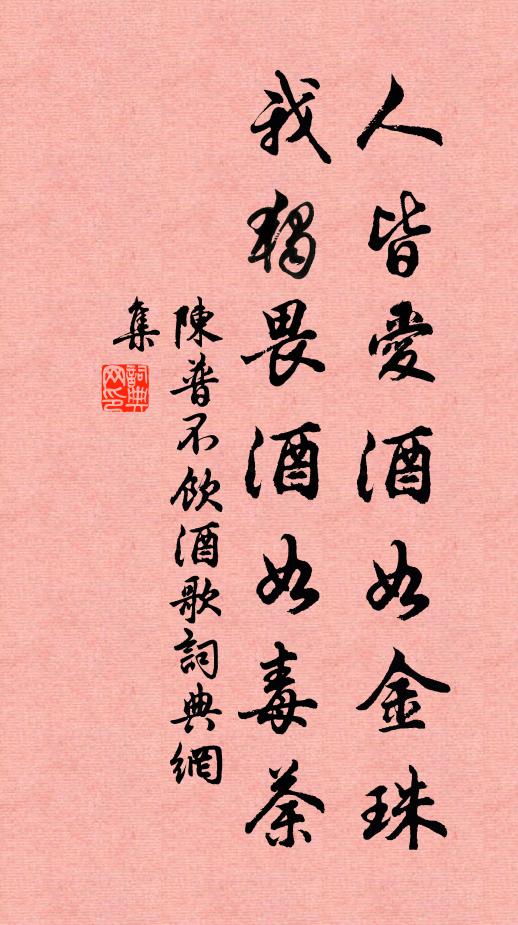 人皆愛酒如金珠
我獨畏酒如毒荼
陳普不飲酒歌詞典網
集
詞典網印